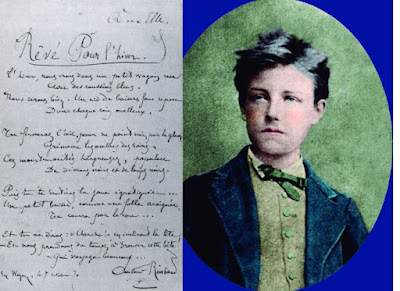 Elle.
Rêvé Pour l'hiver.
L'hiver, nous irons dans un petit wagon rose
Avec des coussins bleus.
Nous serons bien. Un nid de baisers fous repose
Dans chaque coin moelleux.
Tu fermeras l'œil, pour ne point voir, par la glace,
Grimacer les ombres des soirs,
Ces monstruosités hargneuses, populace
De démons noirs et de loups noirs.
Puis tu te sentiras la joue égratignée...
Un petit baiser, comme une folle araignée,
Te courra par le cou...
Et tu me diras : "Cherche !" en inclinant la tête,
Et nous prendrons du temps à trouver cette bête
Qui voyage beaucoup...
En Wagon, le 7 octobre 70
Arthur Rimbaud